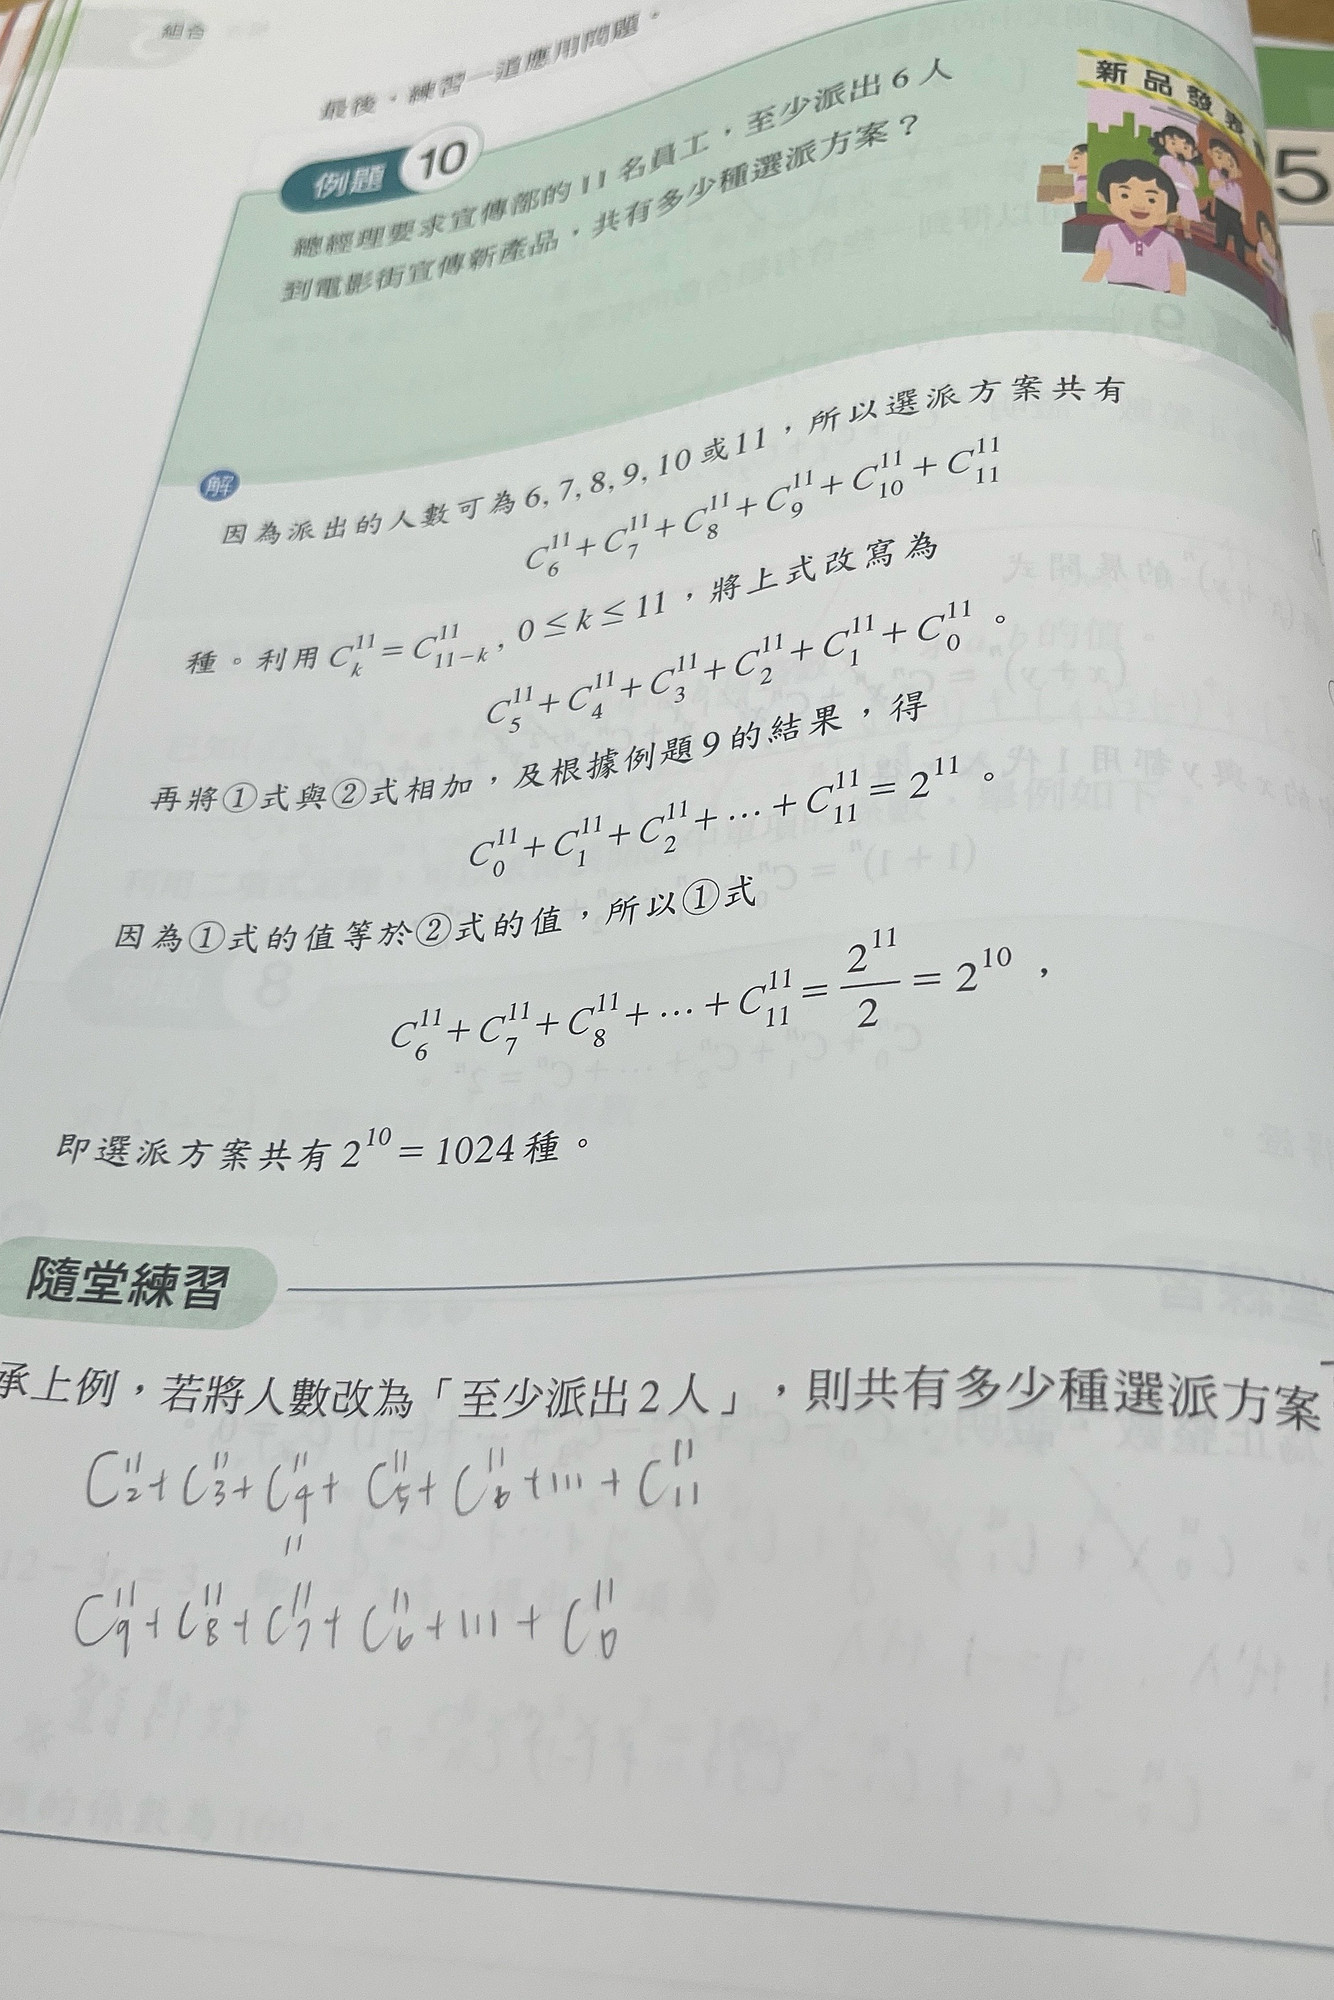 組合
最後，練習一道應用問題。
新品發表
5
例題 10
總經理要求宣傳部的 11 名員工，至少派出 6 人
到電影街宣傳新產品，共有多少種選派方案？
解
因為派出的人數可為 6, 7, 8, 9, 10 或 11，所以選派方案共有
C₆¹¹ + C₇¹¹ + C₈¹¹ + C₉¹¹ + C₁₀¹¹ + C₁₁¹¹
種。利用 Cₖ¹¹ = C₁₁₋ₖ¹¹, 0 ≤ k ≤ 11，將上式改寫為
C₅¹¹ + C₄¹¹ + C₃¹¹ + C₂¹¹ + C₁¹¹ + C₀¹¹。
再將①式與②式相加，及根據例題 9 的結果，得
C₀¹¹ + C₁¹¹ + C₂¹¹ + … + C₁₁¹¹ = 2¹¹。
因為①式的值等於②式的值，所以①式
C₆¹¹ + C₇¹¹ + C₈¹¹ + … + C₁₁¹¹ = 2¹¹/2 = 2¹⁰，
即選派方案共有 2¹⁰ = 1024 種。
隨堂練習
承上例，若將人數改為「至少派出 2 人」，則共有多少種選派方案
C₂¹¹ + C₃¹¹ + C₄¹¹ + C₅¹¹ + C₆¹¹ + … + C₁₁¹¹
=
C₉¹¹ + C₈¹¹ + C₇¹¹ + C₆¹¹ + … + C₀¹¹